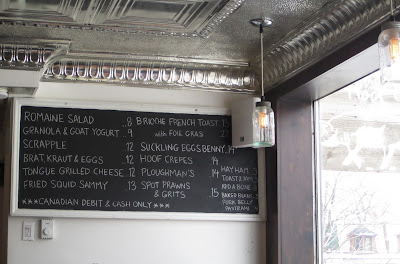 ROMAINE SALAD ..8
GRANOLA & GOAT YOGURT .. 9
SCRAPPLE 12
BRAT, KRAUT & EGGS .. 12
TONGUE GRILLED CHEESE . 12
FRIED SQUID SAMMY 13
***CANADIAN DEBIT & CASH ONLY***
BRIOCHE FRENCH TOAST 13
with FOIE GRAS
SUCKLING EGGS BENNY . 14
HOOF CREPES 14
PLOUGHMAN'S 14
SPOT PRAWNS
& GRITS 15
HAY HAM
TOAST
BAKED BEANS
PORK BELLY
PASTRAMI